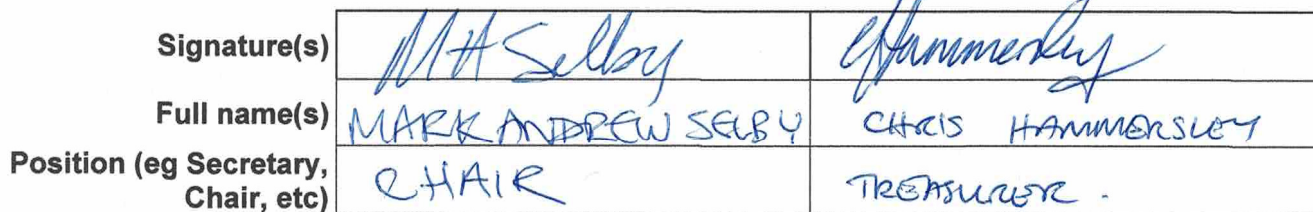 Signature(s) MA Selby CHammersley
Full name(s) MARK ANDREW SELBY CHRIS HAMMERSLEY
Position (eg Secretary, Chair, etc) CHAIR TREASURER.